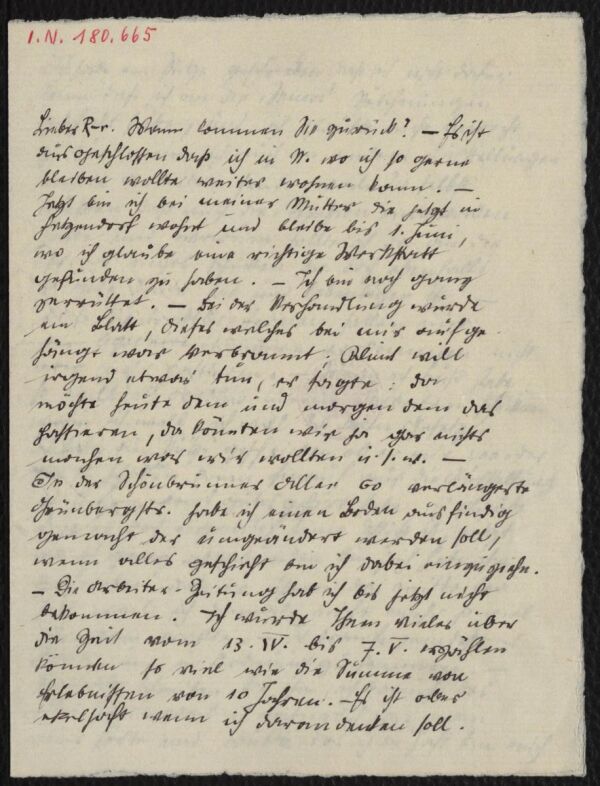 I.N. 180.665
Lieber R–r. Wann kommen Sie zurück? – Es ist
ausgeschlossen daß ich in N. wo ich so gerne
bleiben wollte weiter wohnen kann. –
Jetzt bin ich bei meiner Mutter die jetzt in
Hetzendorf wohnt und bleibe bis 1. Juni,
wo ich glaube eine richtige Werkstatt
gefunden zu haben. – Ich bin noch ganz
zerrüttet. – Bei der Verhandlung wurde
ein Blatt, dieses welches bei mir aufge
hängt war verbrannt. Klimt will
irgend etwas tun, er sagte: da
möchte heute dem und morgen dem das
passieren, da könnten wir ja gar nichts
machen was wir wollten u.s.w. –
In der Schönbrunner Allee 60 verlängerte
Grünbergstr. habe ich einen Boden ausfindig
gemacht der umgeändert werden soll,
wenn alles geschieht bin ich dabei einzuziehn.
– Die Arbeiter-Zeitung hab ich bis jetzt nicht
bekommen. Ich würde Ihnen vieles über
die Zeit vom 13. IV. bis 7. V. erzählen
können so viel wie die Summe von
Erlebnissen von 10 Jahren. – Es ist aber
ekelhaft wenn ich daran denken soll.